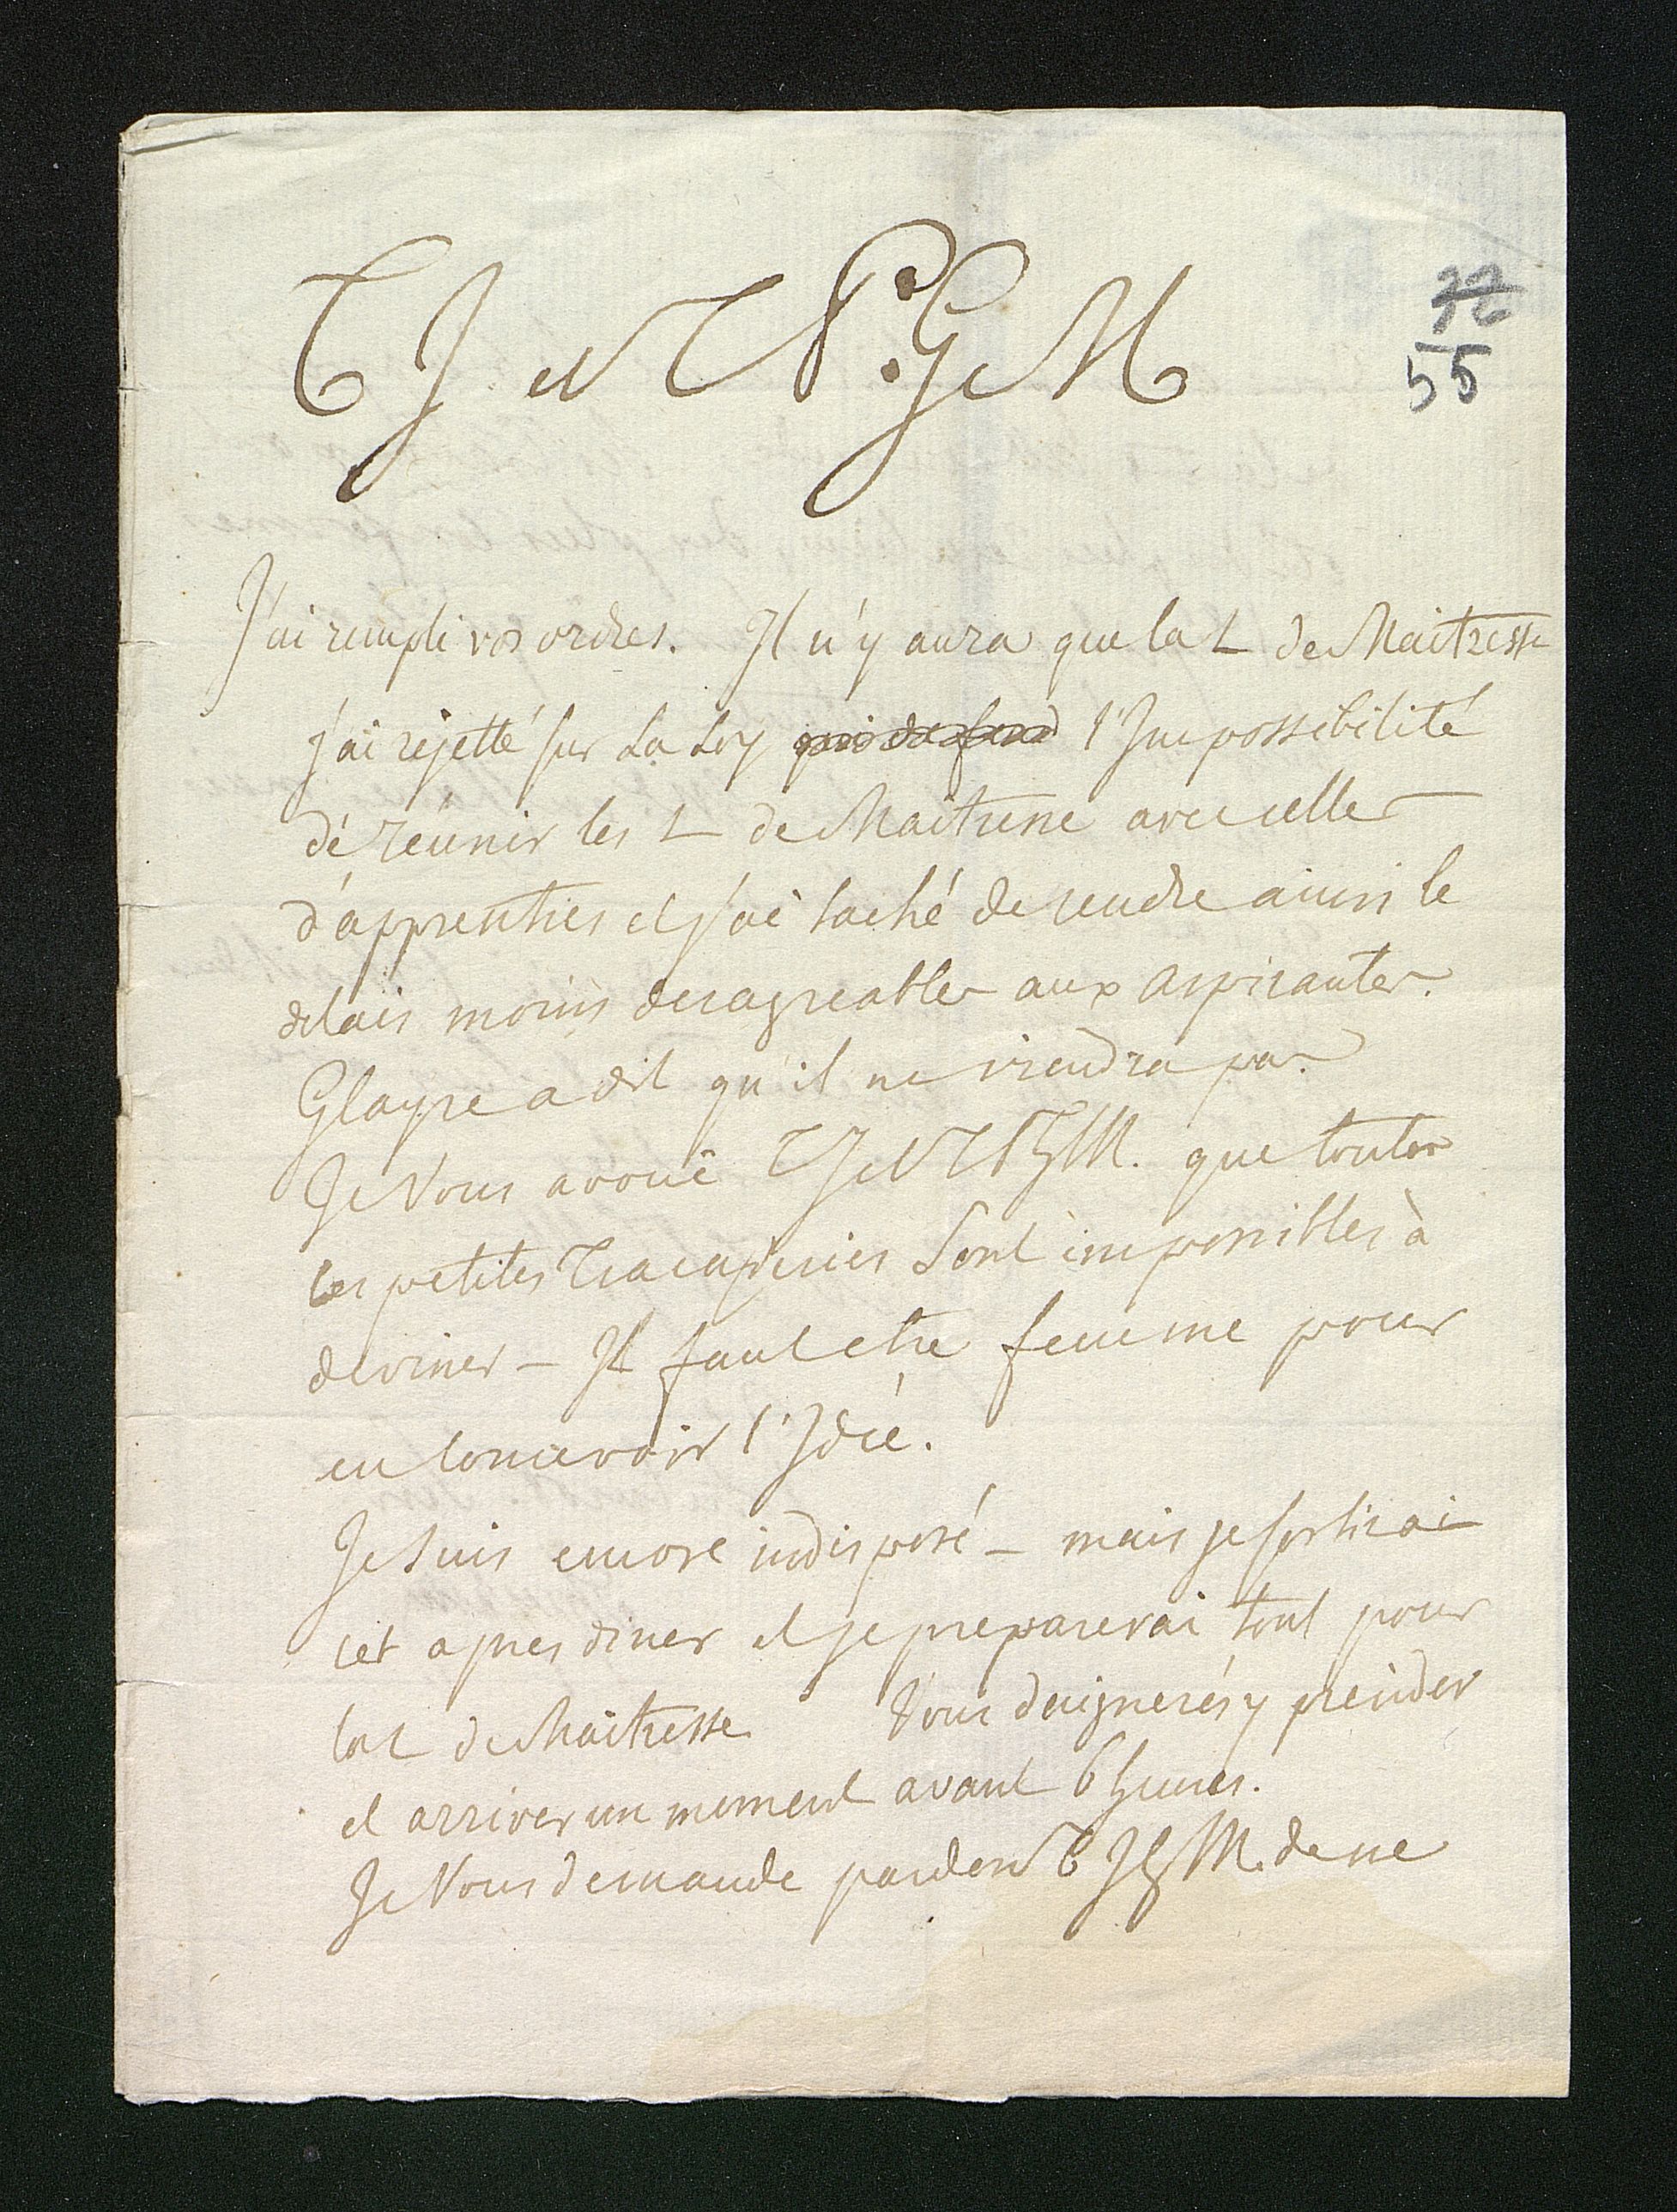 T J et T P. G M
72
55
J'ai rempli vos ordres. Il n'y aura que la L de Maitresse
j'ai rejetté sur la Loy l'Impossibilité
de réunir les L de Maitresse avec celles
d'apprenties et j'ai taché de rendre ainsi le
delais moins desagreable aux aspirantes.
Glayre a dit qu'il ne viendra pas.
Je Vous avouë T J et T P G M. que toutes
les petites Tracasseries Sont impossibles à
deviner – Il faut etre femme pour
en concevoir l'Idée.
Je suis encore indisposé – mais je sortirai
cet apres diner et je preparerai tout pour
la L de Maitresse Vous daignerés y présider
et arriver un moment avant 6 heures.
Je Vous demande pardon T J G M. de ne